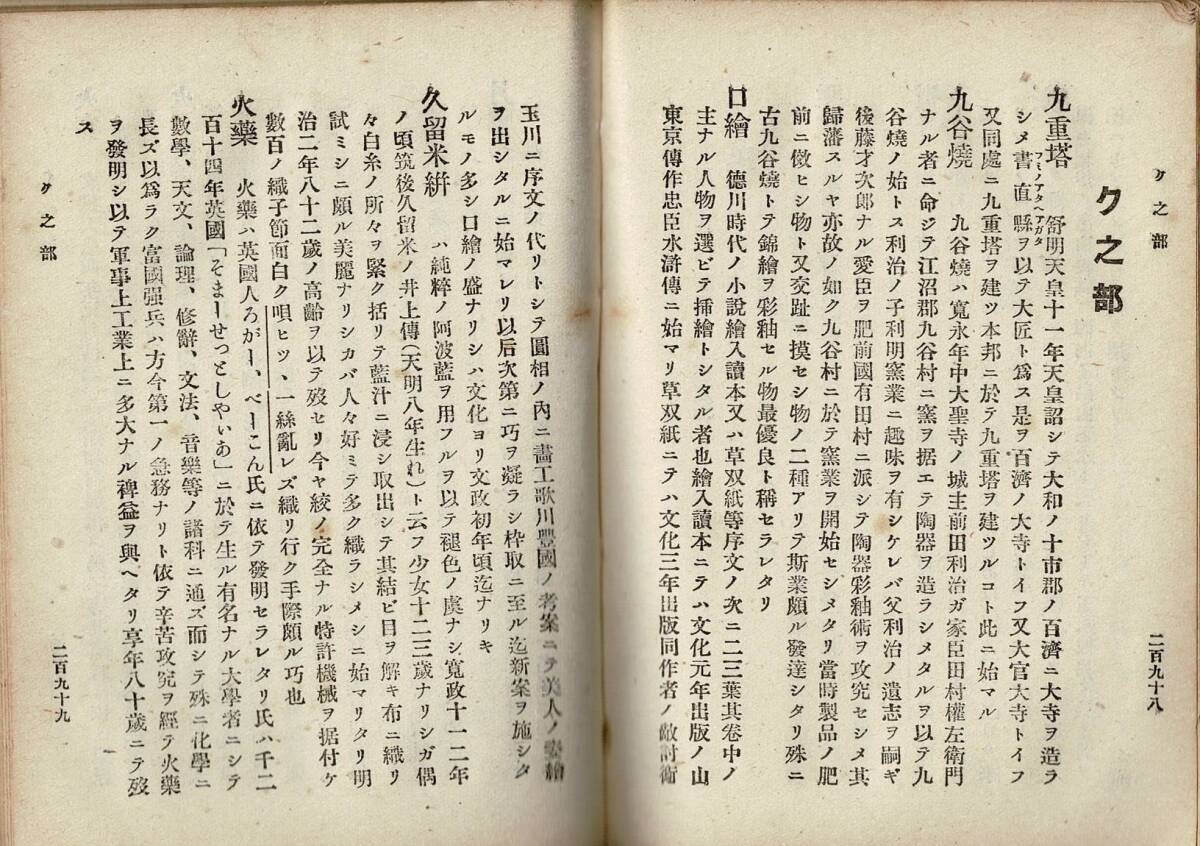 ク之部
二百九十八
ク之部
九重塔　舒明天皇十一年天皇詔シテ大和ノ十市郡ノ百濟ニ大寺ヲ造ラ
シメ書直縣ヲ以テ大匠ト爲ス是ヲ百濟ノ大寺トイフ又大官大寺トイフ
フミノアタヘアガタ
又同處ニ九重塔ヲ建ツ本邦ニ於テ九重塔ヲ建ツルコト此ニ始マル
九谷燒　九谷燒ハ寬永年中大聖寺ノ城主前田利治ガ家臣田村權左衛門
ナル者ニ命ジテ江沼郡九谷村ニ窯ヲ据エテ陶器ヲ造ラシメタルヲ以テ九
谷燒ノ始トス利治ノ子利明窯業ニ趣味ヲ有シケレバ父利治ノ遺志ヲ嗣ギ
後藤才次郎ナル愛臣ヲ肥前國有田村ニ派シテ陶器彩釉術ヲ攻究セシメ其
歸藩スルヤ亦故ノ如ク九谷村ニ於テ窯業ヲ開始セシメタリ當時製品ノ肥
前ニ倣ヒシ物ト又交趾ニ摸セシ物ノ二種アリテ斯業頗ル發達シタリ殊ニ
古九谷燒トテ錦繪ヲ彩釉セル物最優良ト稱セラレタリ
口繪　德川時代ノ小說繪入讀本又ハ草双紙等序文ノ次ニ二三葉其卷中ノ
主ナル人物ヲ選ビテ挿繪トシタル者也繪入讀本ニテハ文化元年出版ノ山
東京傳作忠臣水滸傳ニ始マリ草双紙ニテハ文化三年出版同作者ノ敵討衛
玉川ニ序文ノ代リトシテ圓相ノ內ニ畫工歌川豐國ノ考案ニテ美人ノ繪
ヲ出シタルニ始マレリ以后次第ニ巧ヲ凝ラシ枠取ニ至ル迄新案ヲ施シタ
ルモノ多シ口繪ノ盛ナリシハ文化ヨリ文政初年頃迄ナリキ
久留米絣　ハ純粹ノ阿波藍ヲ用フルヲ以テ褪色ノ虞ナシ寬政十一二年
ノ頃筑後久留米ノ井上傳(天明八年生れ)ト云フ少女十二三歲ナリシガ偶
々白糸ノ所々ヲ緊ク括リテ藍汁ニ浸シ取出シテ其結ビ目ヲ解キ布ニ織リ
試ミシニ頗ル美麗ナリシカバ人々好ミテ多ク織ラシメシニ始マリタリ明
治二年八十二歲ノ高齡ヲ以テ歿セリ今ヤ絞ノ完全ナル特許機械ヲ据付ケ
數百ノ織子節面白ク唄ヒツヽ一絲亂レズ織リ行ク手際頗ル巧也
火藥　火藥ハ英國人ろがー、べーこん氏ニ依テ發明セラレタリ氏ハ千二
百十四年英國「そまーせっとしやいあ」ニ於テ生ル有名ナル大學者ニシテ
數學、天文、論理、修辭、文法、音樂等ノ諸科ニ通ズ而シテ殊ニ化學ニ
長ズ以爲ラク富國强兵ハ方今第一ノ急務ナリト依テ辛苦攻究ヲ經テ火藥
ヲ發明シ以テ軍事上工業上ニ多大ナル裨益ヲ與ヘタリ享年八十歲ニテ歿
ス
ク之部
二百九十九